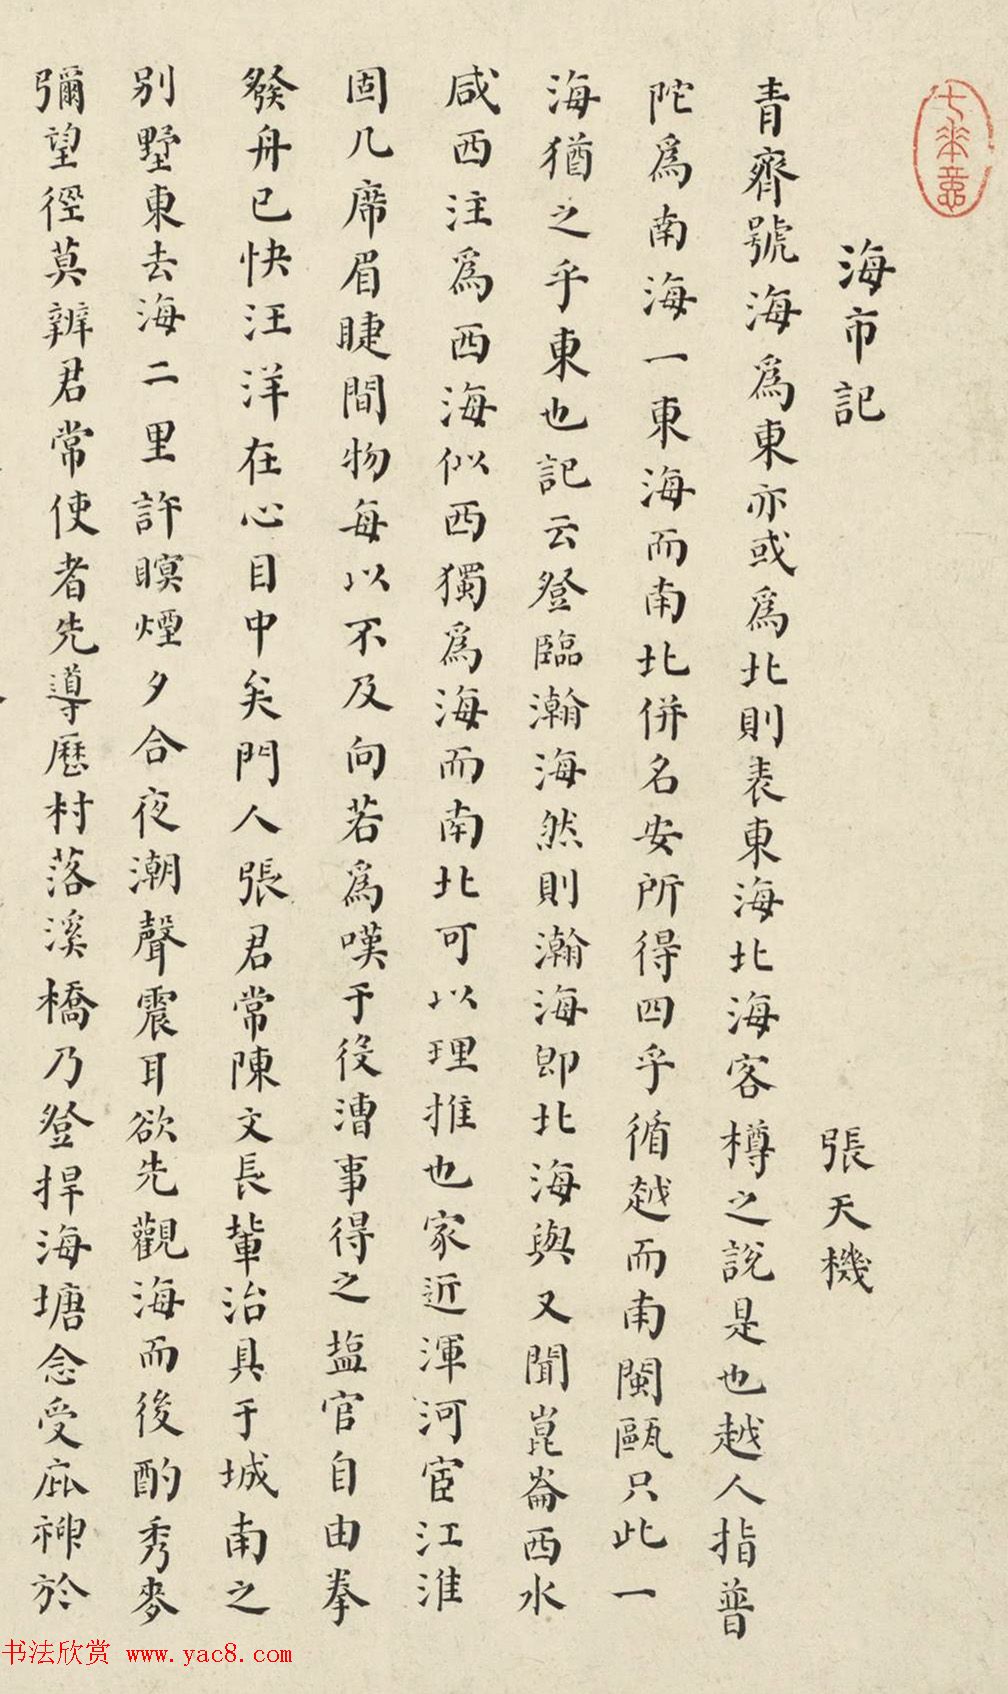 海市記
張天機
青齊號海為東亦或為北則表東海北海客樽之說是也越人指普
陀為南海一東海而南北併名安所得四乎循越而南閩甌只此一
海猶之乎東也記云登臨瀚海然則瀚海即北海與又聞崑崙西水
咸西注為西海似西獨為海而南北可以理推也家近渾河宦江淮
固几席眉睫間物每以不及向若為嘆于役漕事得之盐官自由拳
發舟已快汪洋在心目中矣門人張君常陳文長輩治具于城南之
別墅東去海二里許瞑煙夕合夜潮聲震耳欲先觀海而後酌秀麥
彌望徑莫辨君常使者先導歷村落溪橋乃登捍海塘念受庇神於
书法欣赏 www.yac8.com